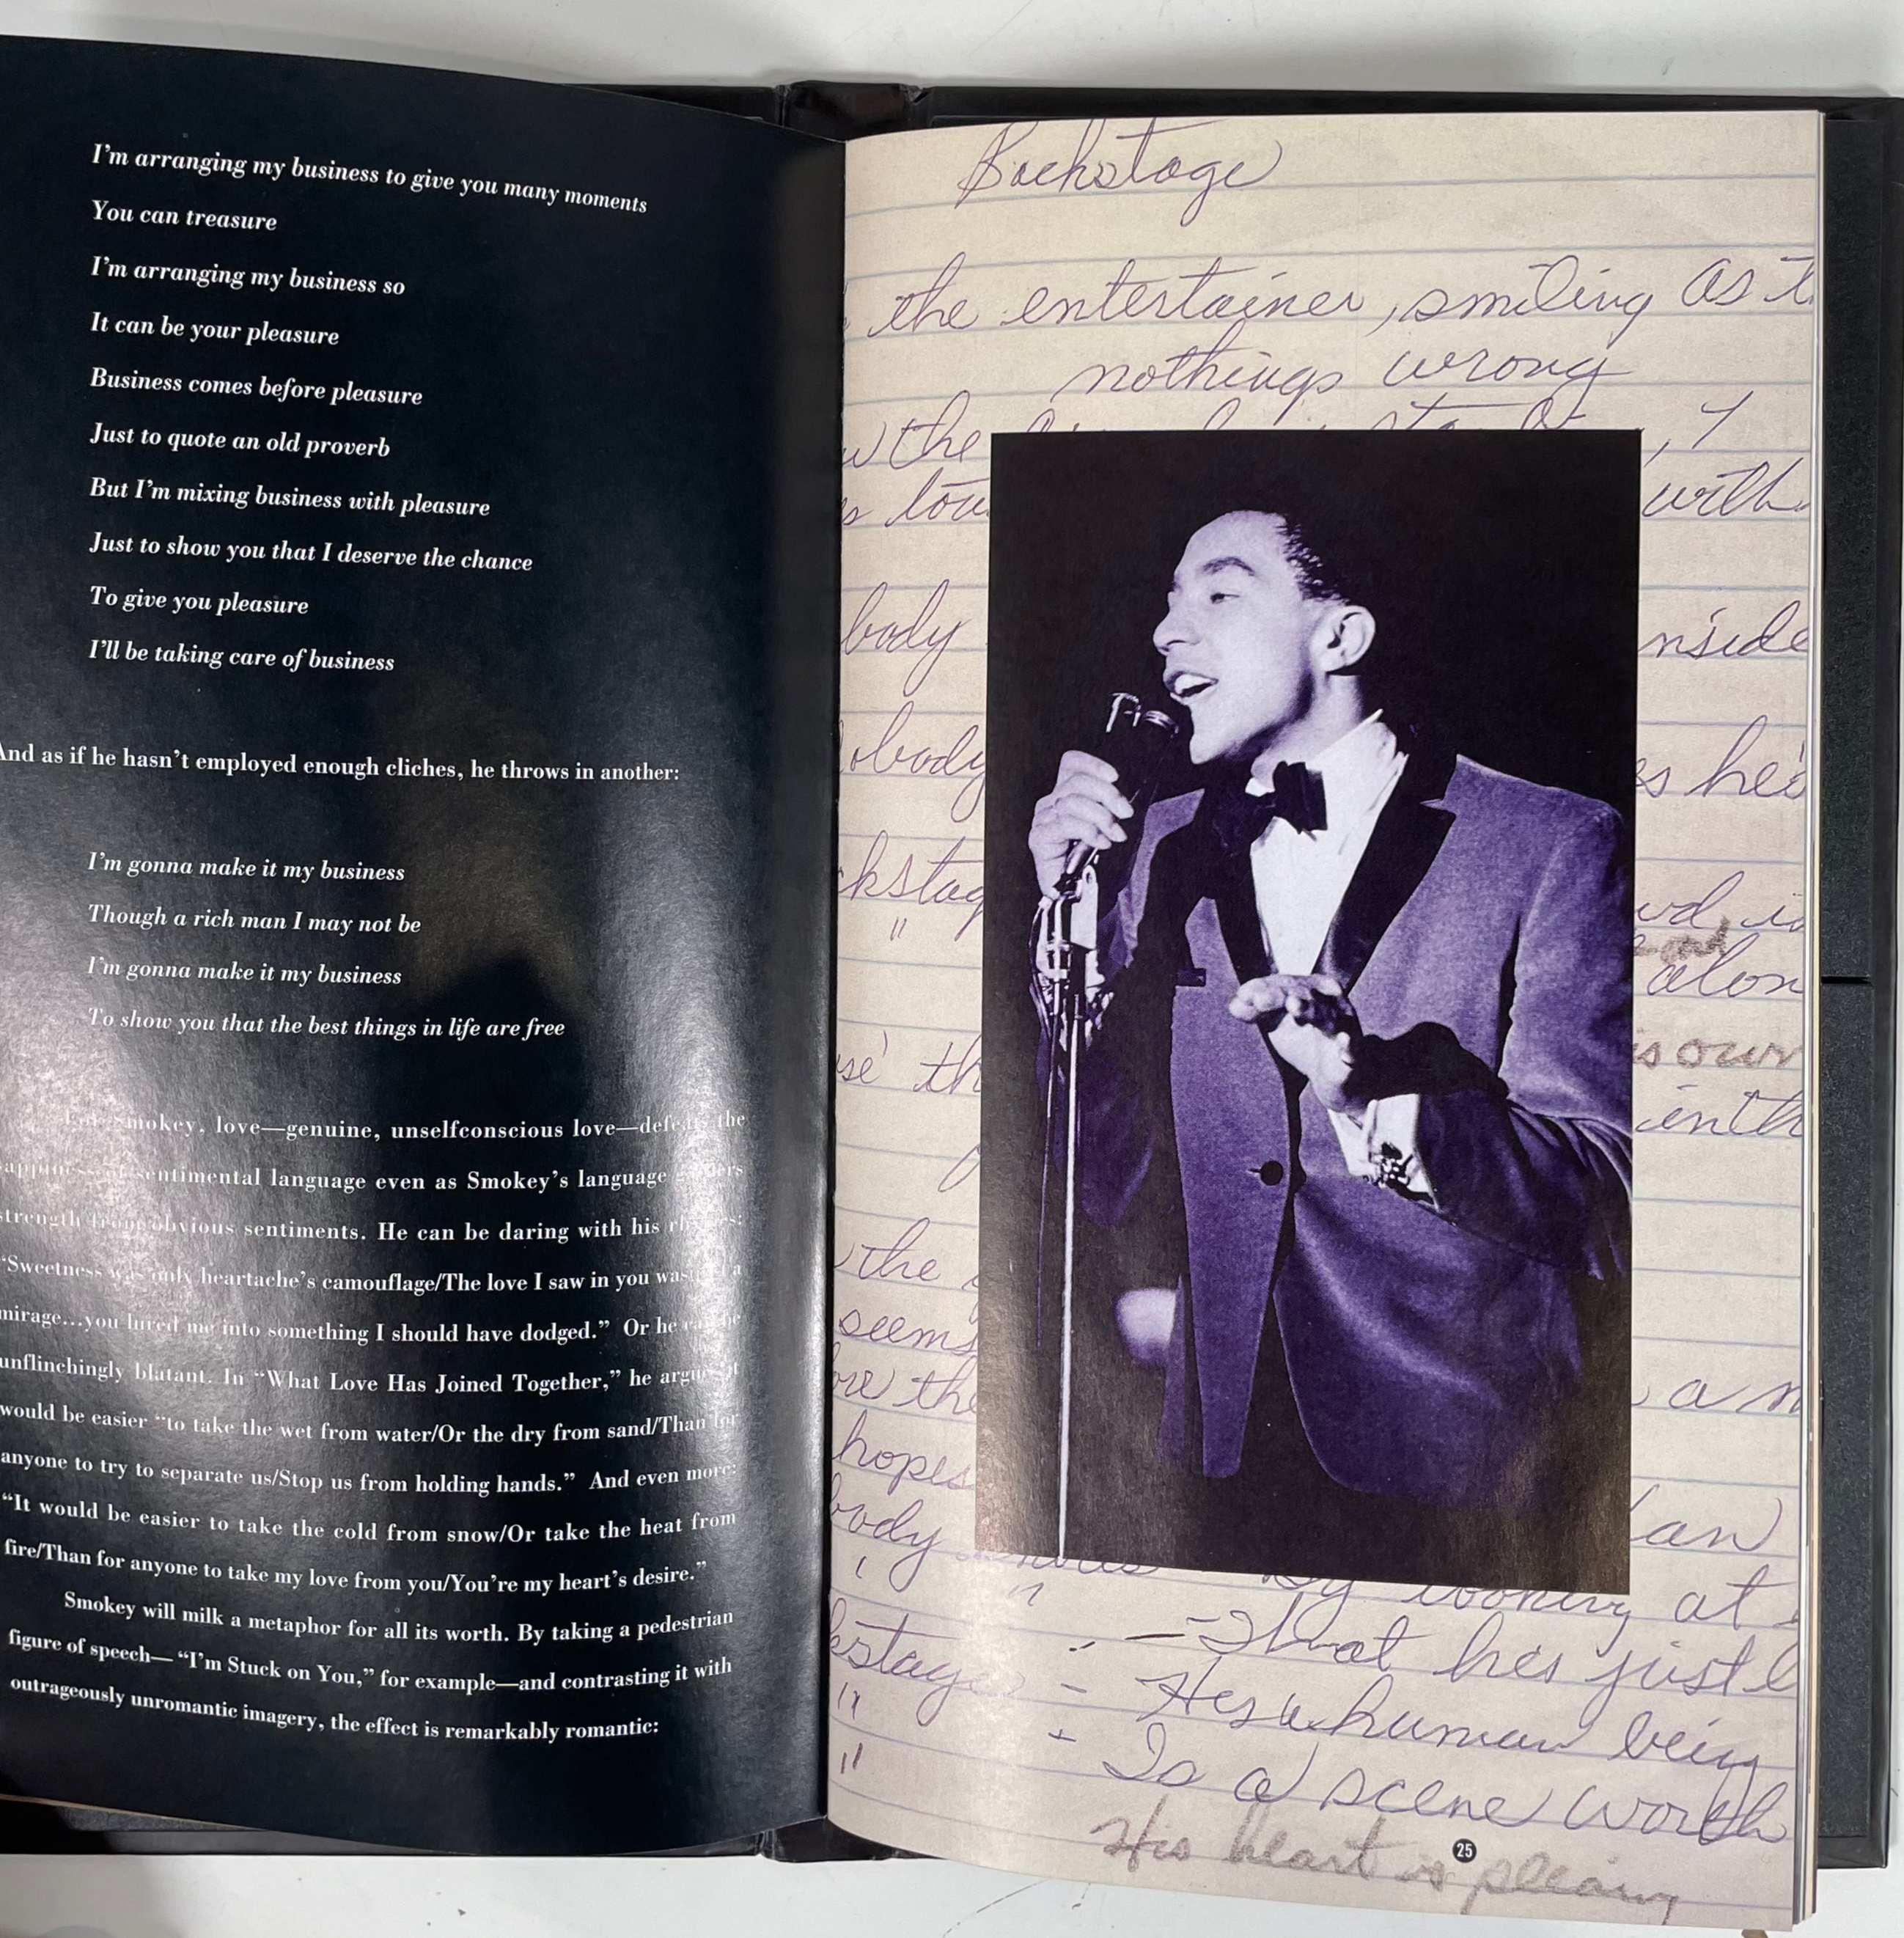 I'm arranging my business to give you many moments
You can treasure
I'm arranging my business so
It can be your pleasure
Business comes before pleasure
Just to quote an old proverb
But I'm mixing business with pleasure
Just to show you that I deserve the chance
To give you pleasure
I'll be taking care of business
And as if he hasn't employed enough cliches, he throws in another:
I'm gonna make it my business
Though a rich man I may not be
I'm gonna make it my business
To show you that the best things in life are free
Smokey, love—genuine, unselfconscious love—defeats the
sentimental language even as Smokey's language
strength from obvious sentiments. He can be daring with his rhymes:
"Sweetness was only heartache's camouflage/The love I saw in you was just a
mirage...you lured me into something I should have dodged." Or he can be
unflinchingly blatant. In "What Love Has Joined Together," he argues it
would be easier "to take the wet from water/Or the dry from sand/Than for
anyone to try to separate us/Stop us from holding hands." And even more:
"It would be easier to take the cold from snow/Or take the heat from
fire/Than for anyone to take my love from you/You're my heart's desire."
Smokey will milk a metaphor for all its worth. By taking a pedestrian
figure of speech— "I'm Stuck on You," for example—and contrasting it with
outrageously unromantic imagery, the effect is remarkably romantic:
Backstage
the entertainer, smiling as
nothings wrong
the , I
with
body nside
obody es he's
kstag
"
alon
is own
the
seems
the , a
hopes
body an
by looking at
" - That hes just
kstage - Hes a human being
" - Is a scene worth
"
His heart is
25